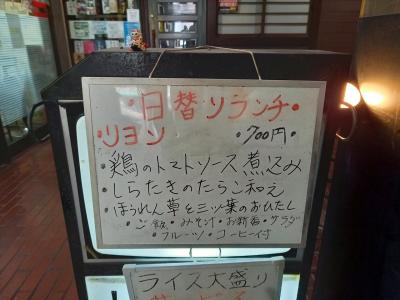 ・日替りランチ・
・リヨン ・700円・
・鶏のトマトソース煮込み
・しらたきのたらこ和え
・ほうれん草と三ッ葉のおひたし
・ご飯・みそ汁・お新香・サラダ
・フルーツ・コーヒー付
ライス大盛り